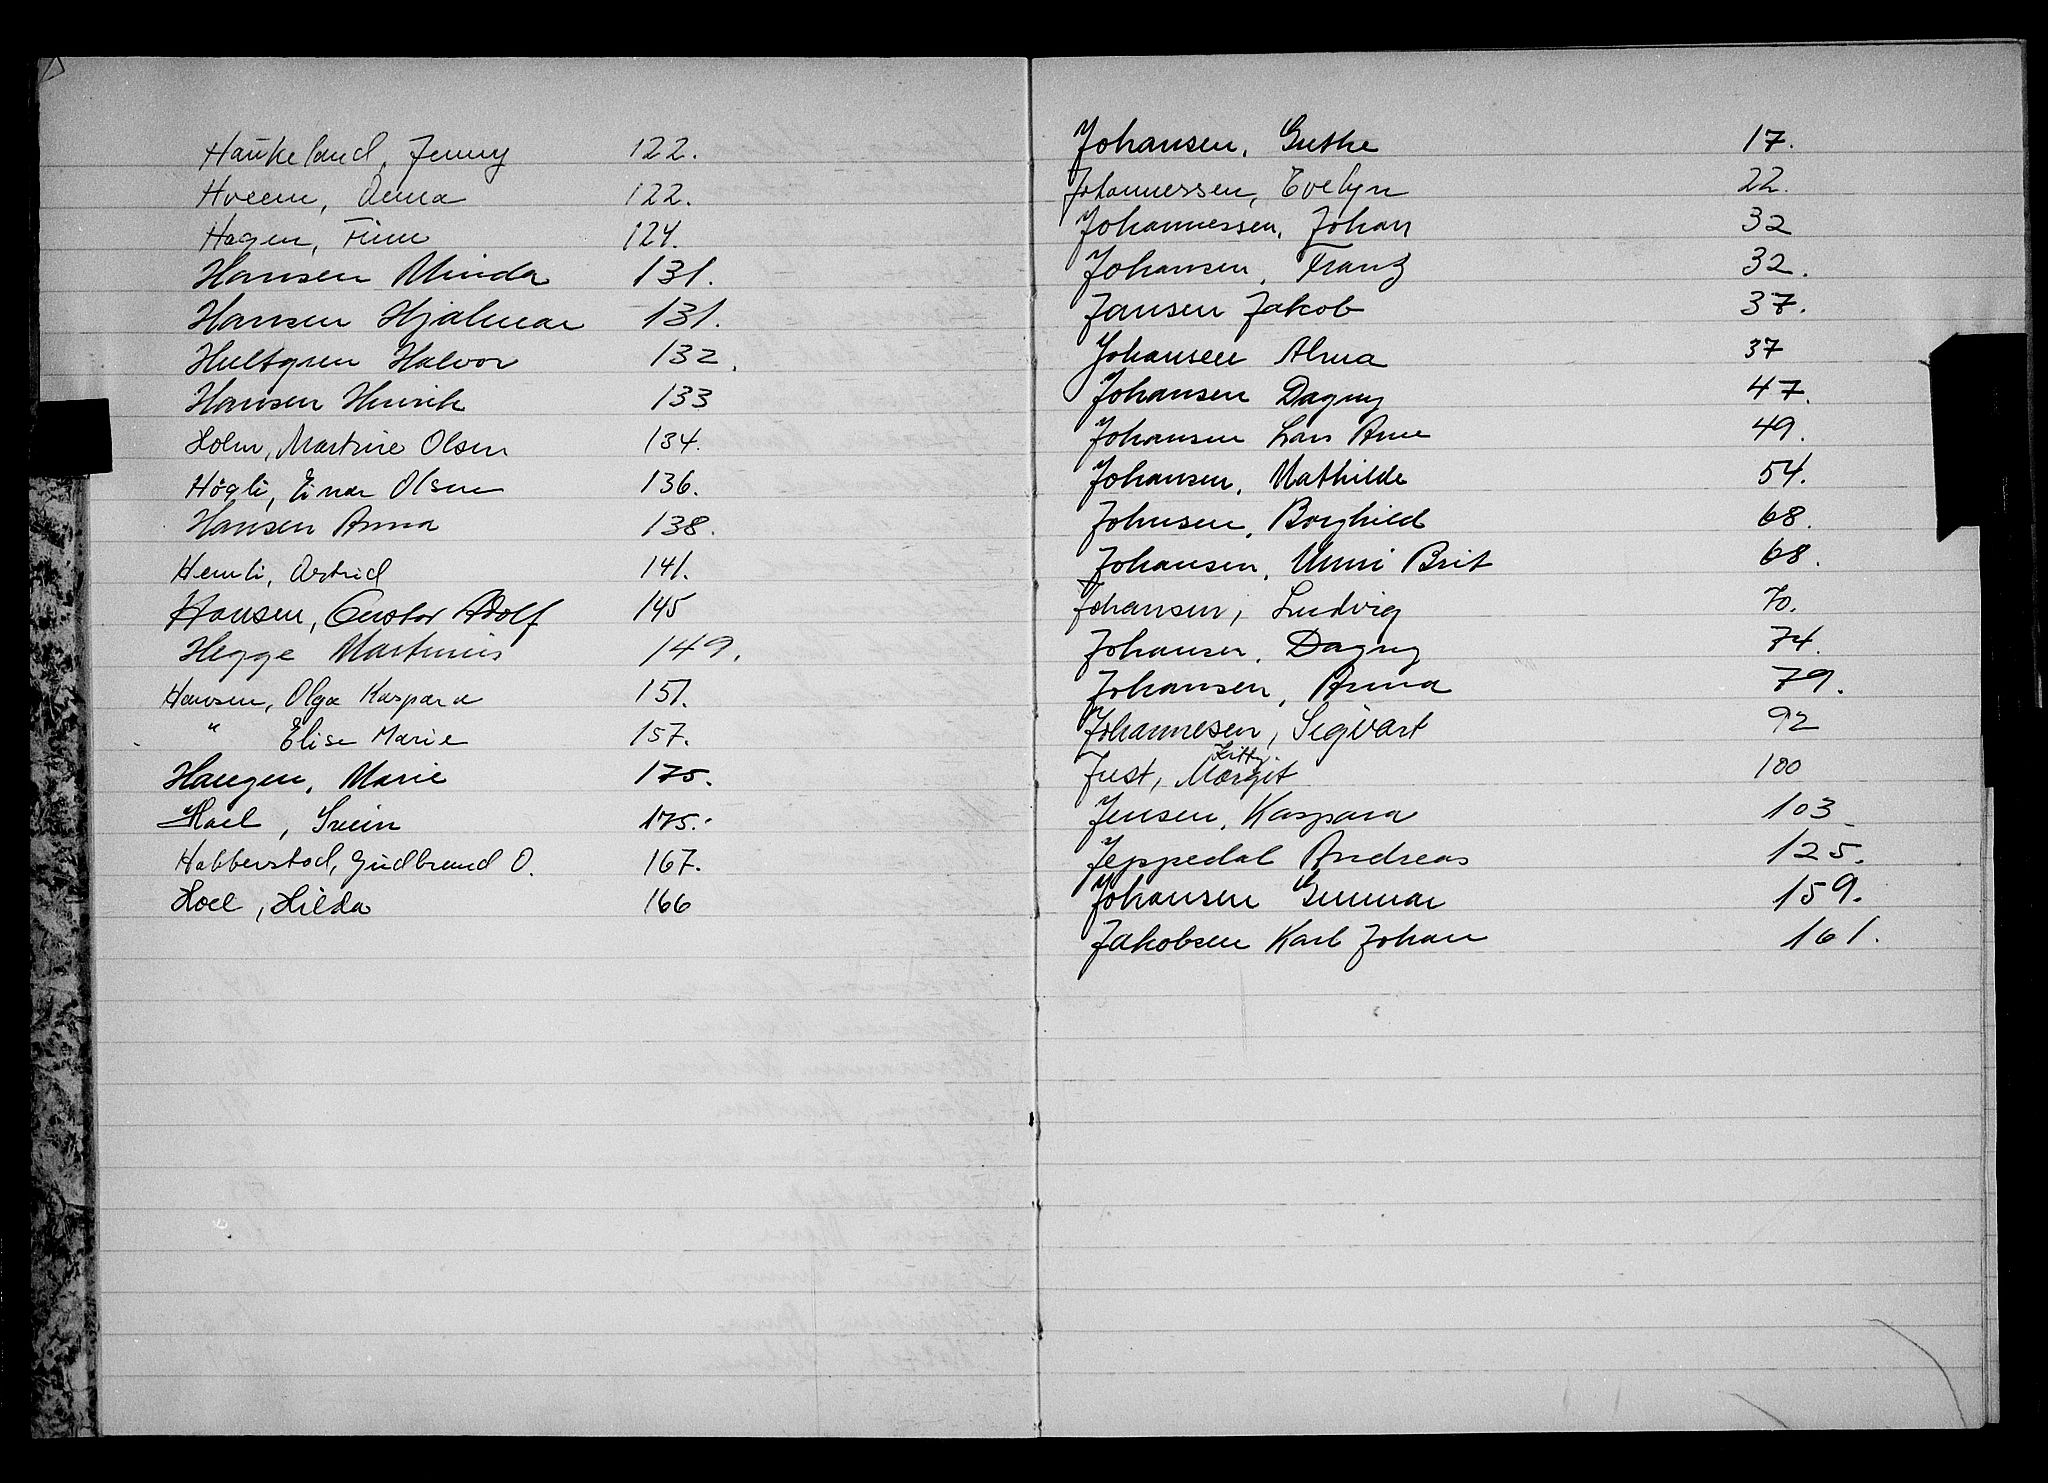 Haukeland, Jenny 122.
Hveem, Anna 122.
Hagen, Finn 124.
Hansen Minda 131.
Hansen Hjalmar 131.
Hultgren Halvor 132.
Hansen Henrik 133
Holm, Martine Olsen 134.
Høgli, Einar Olsen 136.
Hansen Anna 138.
Hemli, Astrid 141.
Hansen, Gustav Adolf 145
Hegge Martinius 149.
Hansen, Olga Kaspara 151.
" Elise Marie 157.
Haugen, Marie 175.
Hoel, Svein 175.
Habberstad, Gudbrand O. 167.
Hoel, Hilda 166
Johansen, Grethe 17.
Johannessen, Evelyn 22.
Johannessen, Johan 32
Johansen, Franz 32.
Jansen Jakob 37.
Johansen Alma 37
Johansen Dagny 47.
Johansen Lars Arne 49.
Johansen, Mathilde 54.
Johnsen, Borghild 68.
Johansen, Unni Brit 68.
Johansen, Ludvig 70.
Johansen, Dagny 74.
Johansen, Anna 79.
Johannesen, Sigvart 92
Kitty.
Just, Margit 100
Jensen, Kaspara 103
Jeppedal Andreas 125.
Johansen Gunnar 159.
Jakobsen Karl Johan 161.